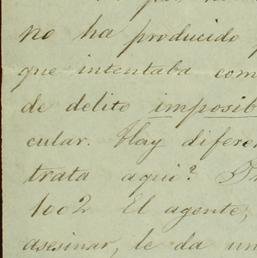 no ha producido
que intentaba com
de delito imposib
cular. Hay diferen
trata aqui? 
1002 El agente,
asesinar, le da un